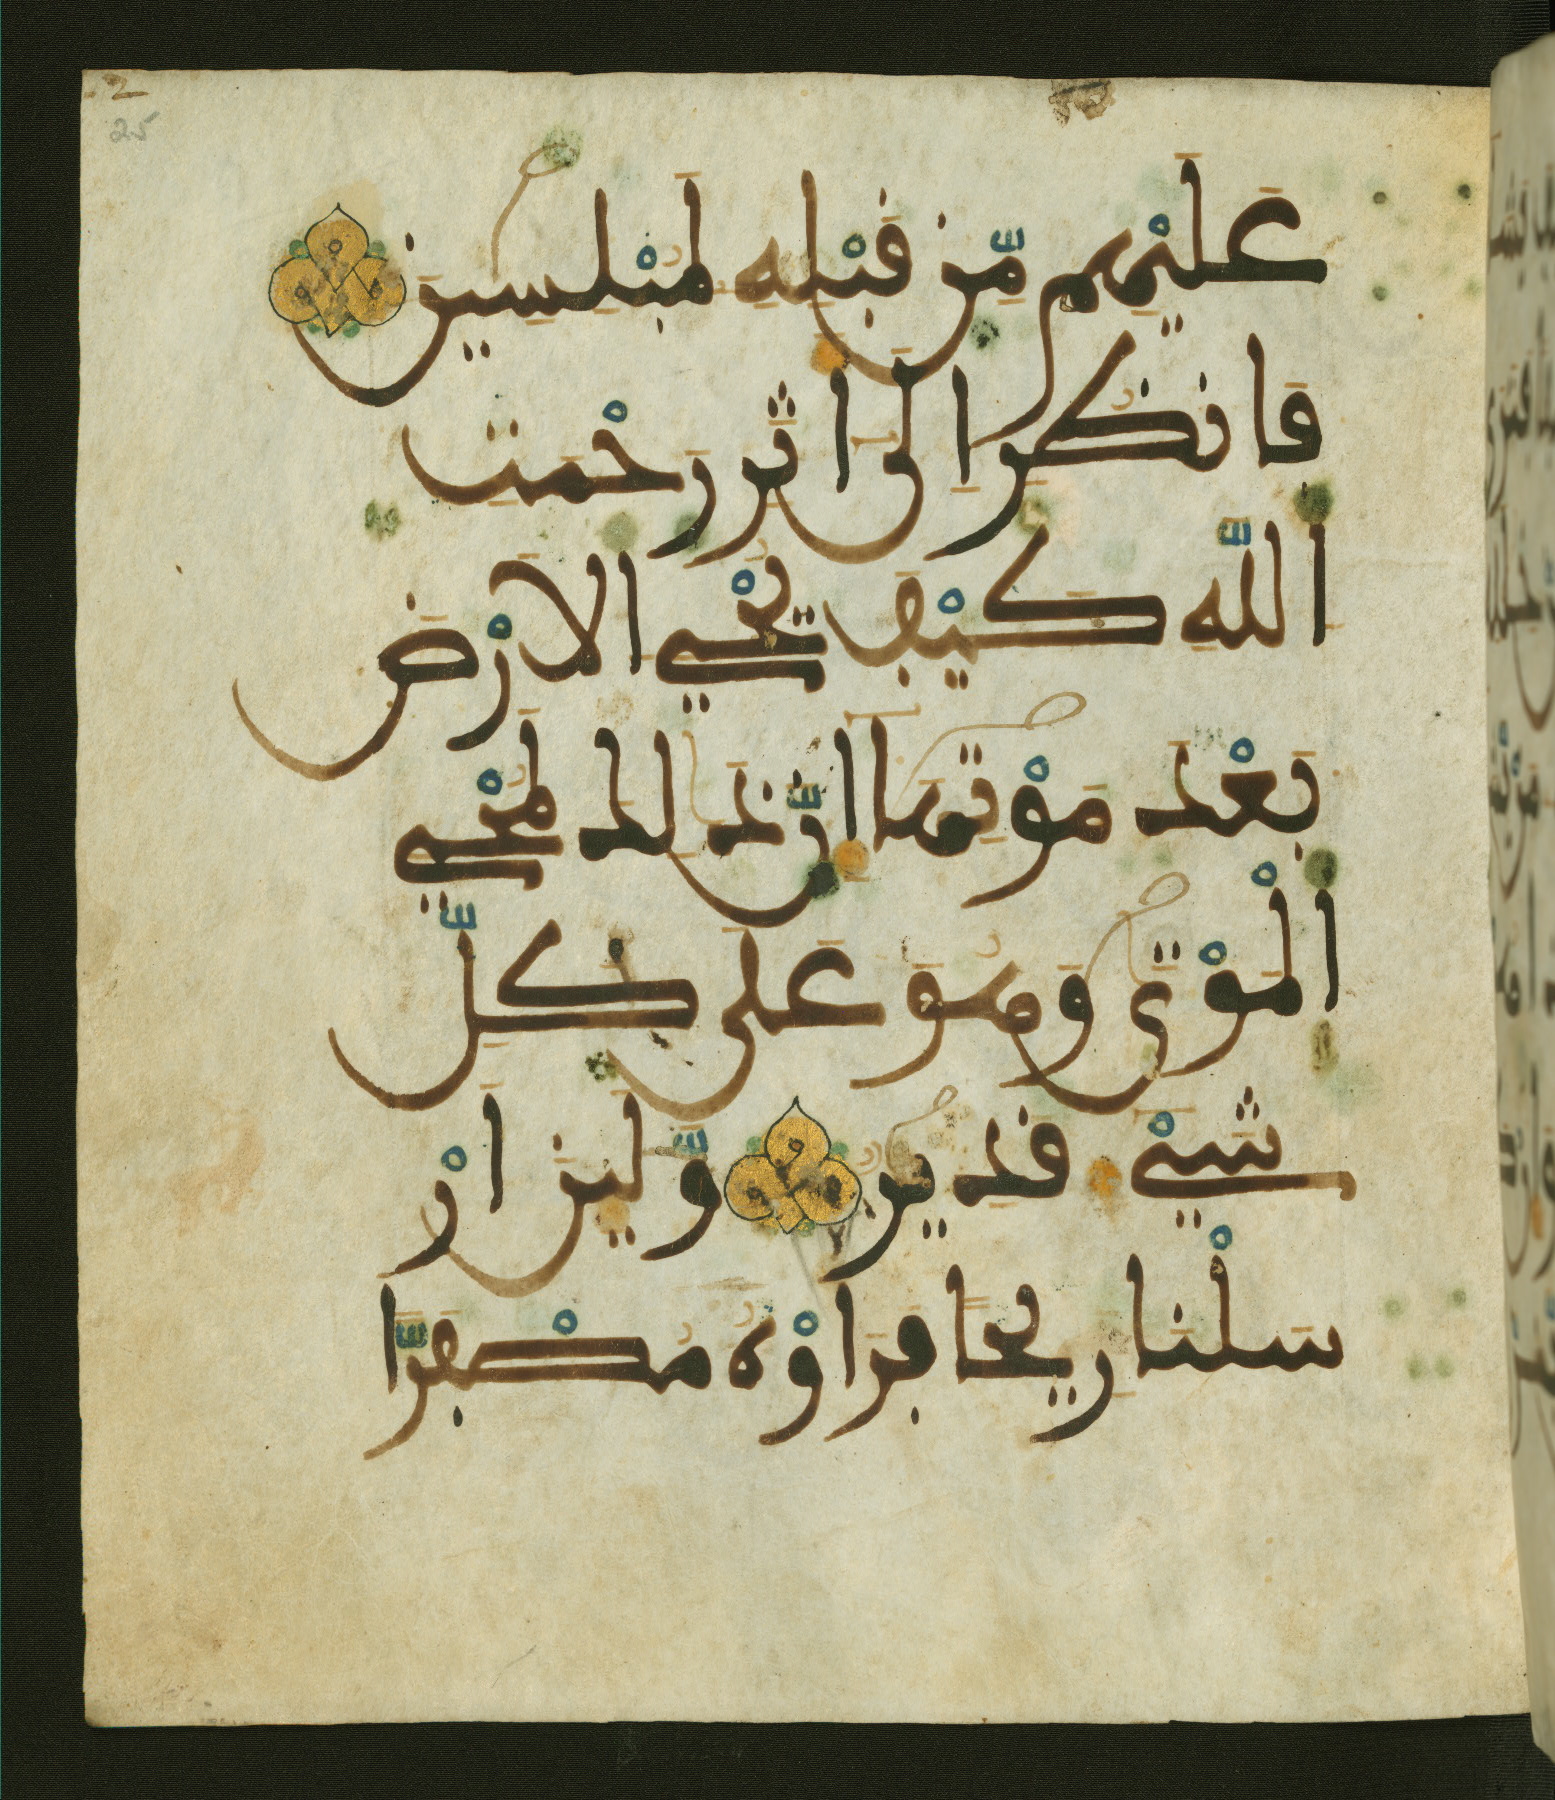 2
25
عَلَيْهِم مِّن قَبْلِهِ لَمُبْلِسِينَ
فَانظُرِ اِلَىٰ أَثَرِ رَحْمَتِ
اللَّهِ كَيْفَ يُحْيِ الْأَرْضَ
بَعْدَ مَوْتِهَا إِنَّ ذَٰلِكَ لَمُحْيِ
الْمَوْتَىٰ وَهُوَ عَلَىٰ كُلِّ
شَيْءٍ قَدِيرٌ وَلَئِنْ أَرْ
سَلْنَا رِيحًا فَرَأَوْهُ مُصْفَرًّا